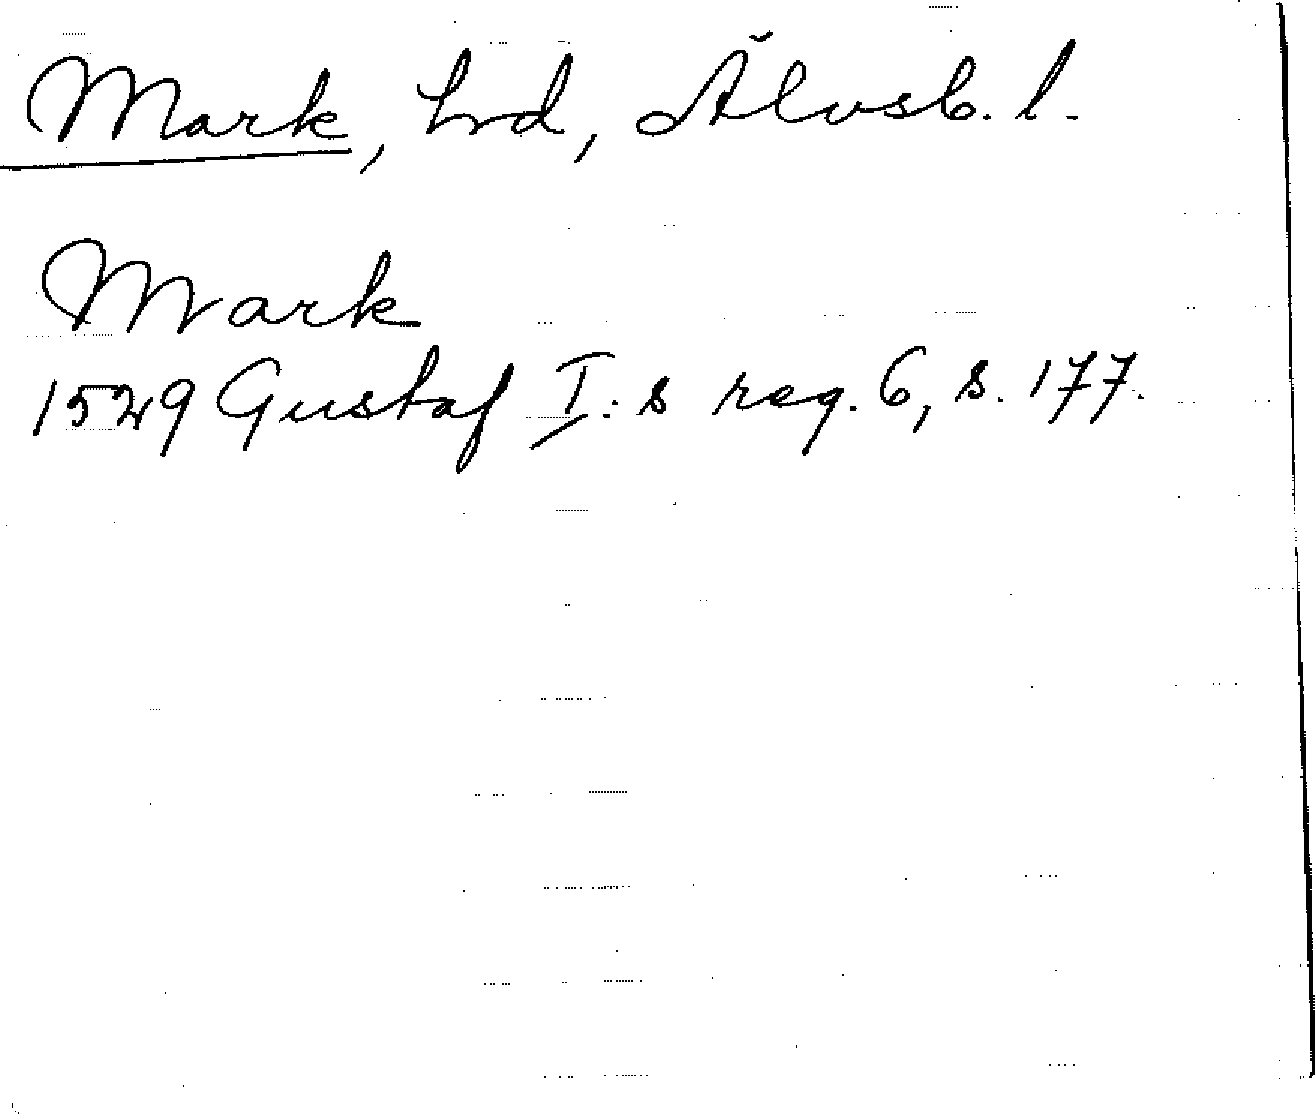 Mark, hrd, Älvsb. l.
Mark
1529 Gustaf I:s reg. 6, s. 177.